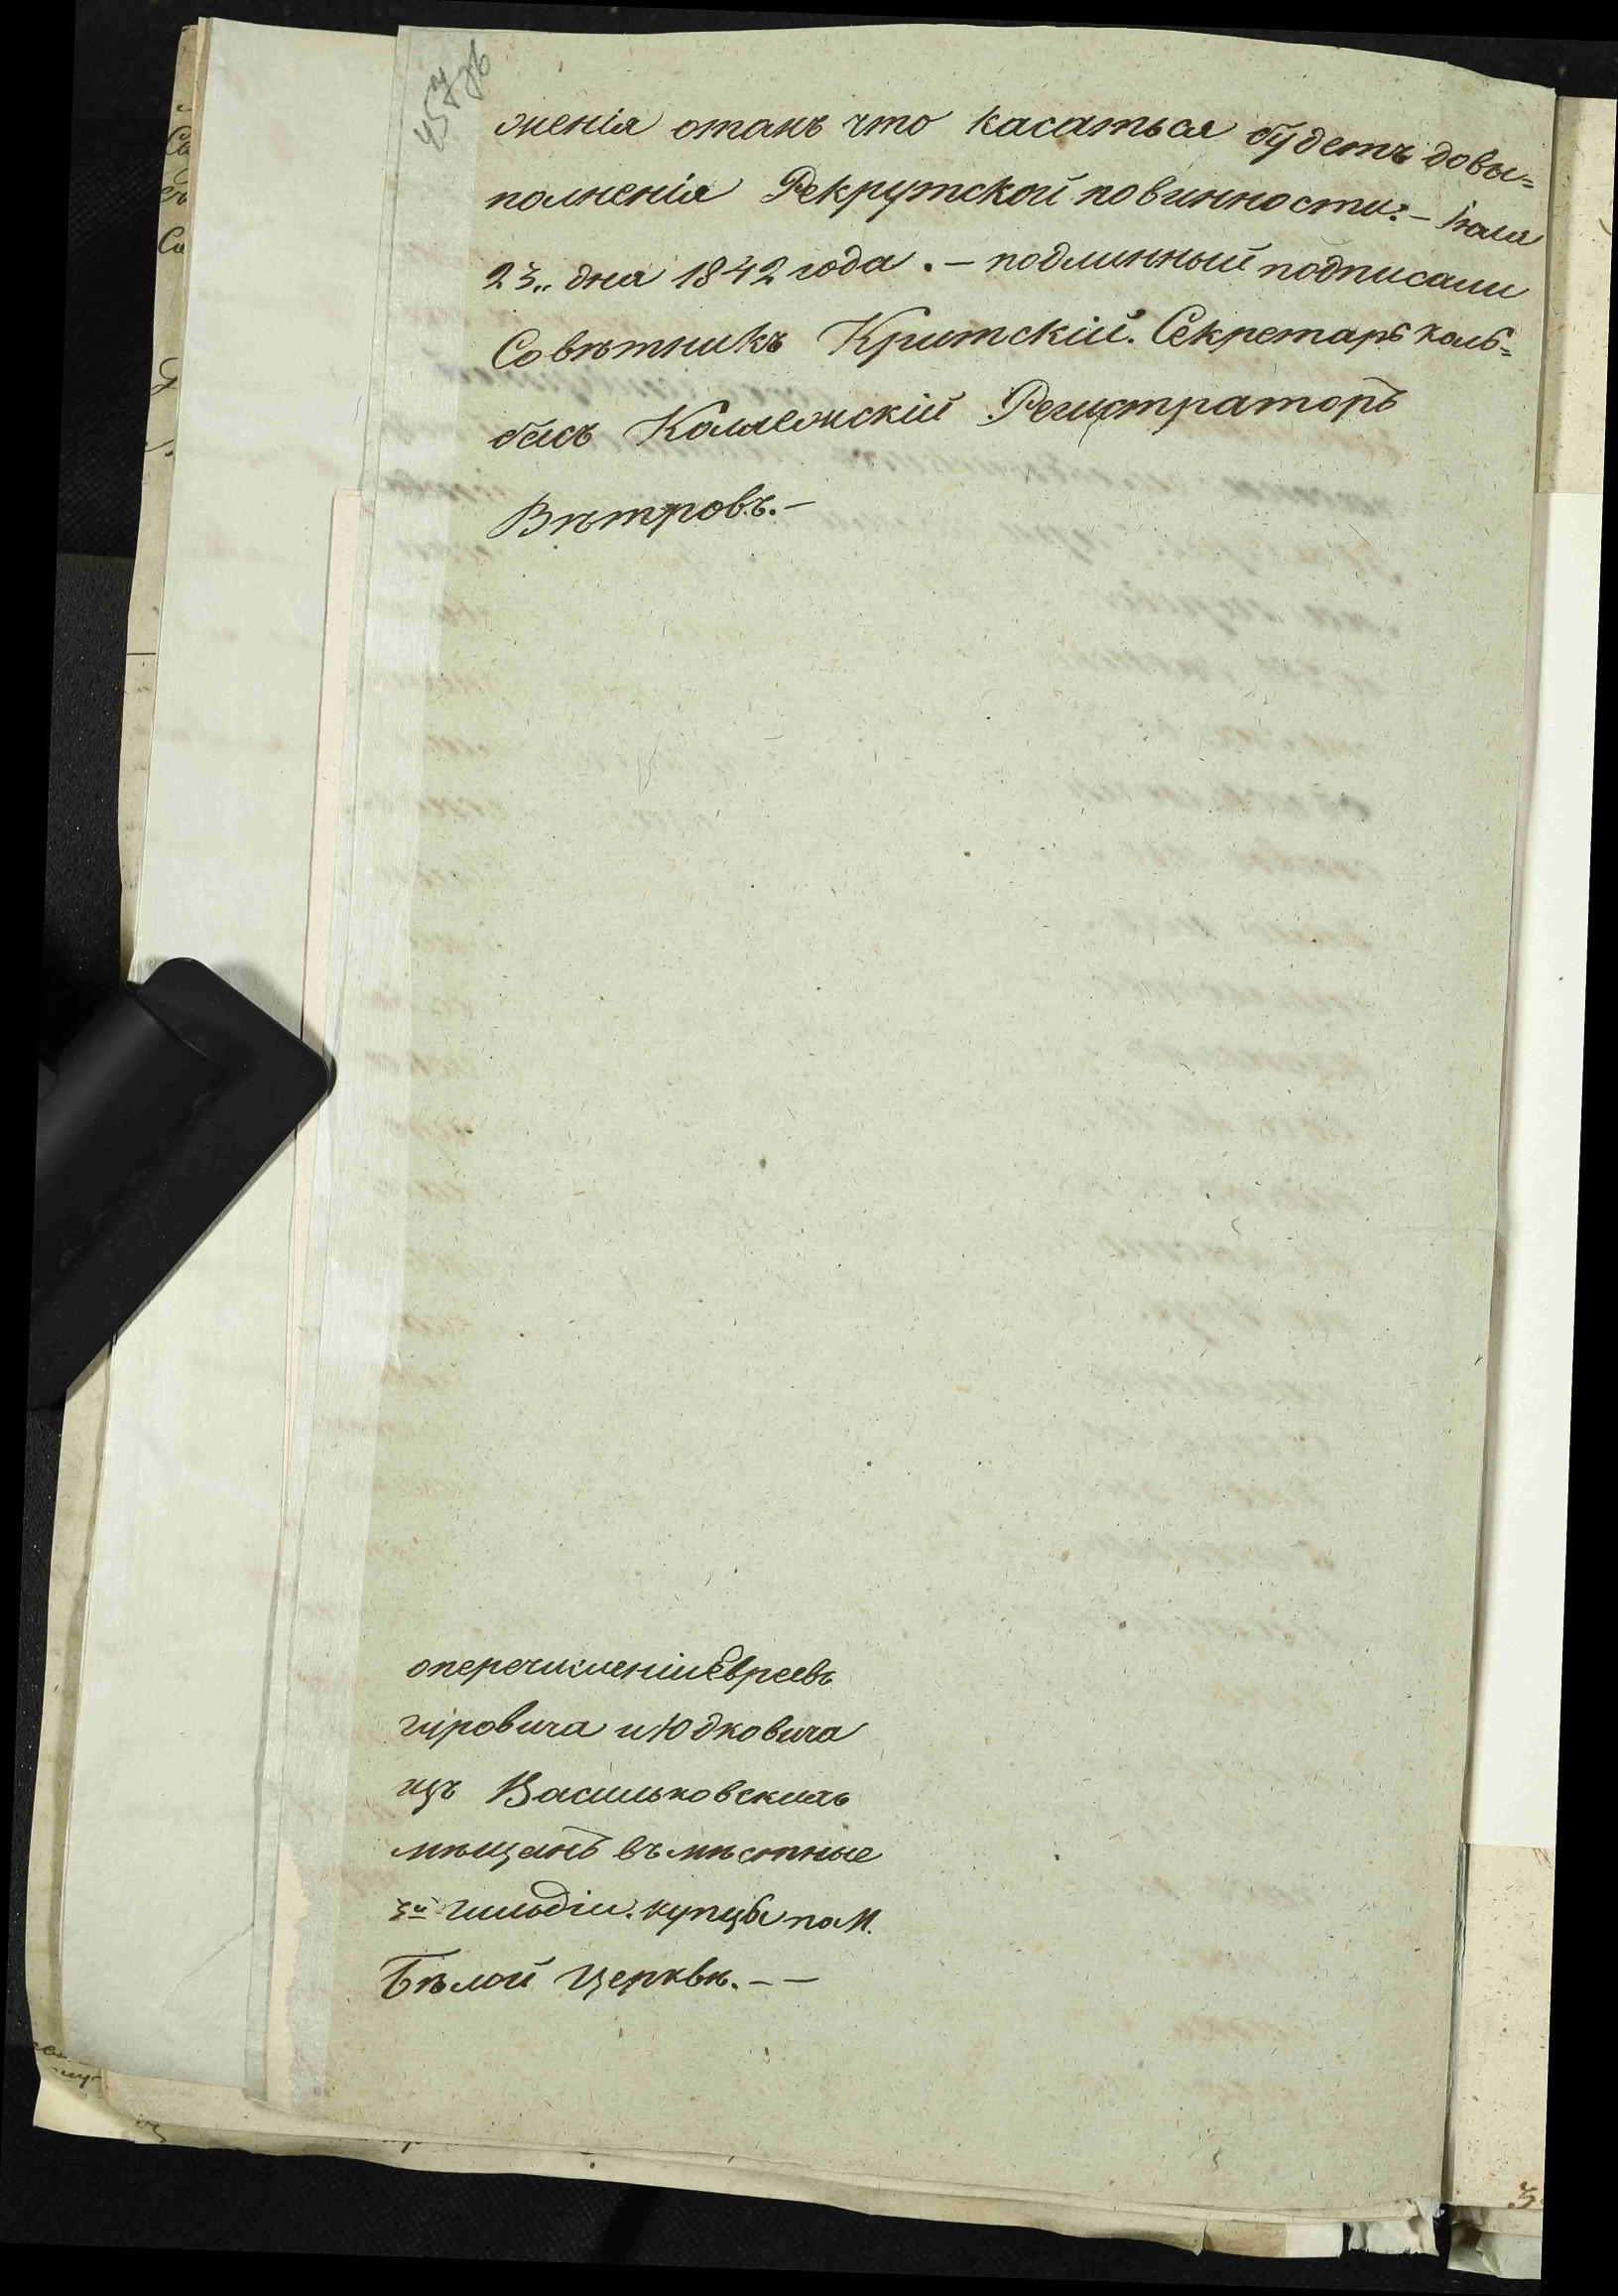 женія отомъ что касаться будетъ довы=
полненія Рекрутской повинности. – Іюля
23„ дня 1842 года. – подлинный подписали
Совѣтникъ Критскій. Секретарь Коль=
басъ Коллежскій Регистраторъ
Вѣтровъ. –
оперечисленіи Евреевъ
гировича и Юдковича
изъ Васильковскихъ
мѣщанъ въ мѣстные
3й гильдіи. купцы по М.
Бѣлой Церквѣ. – –